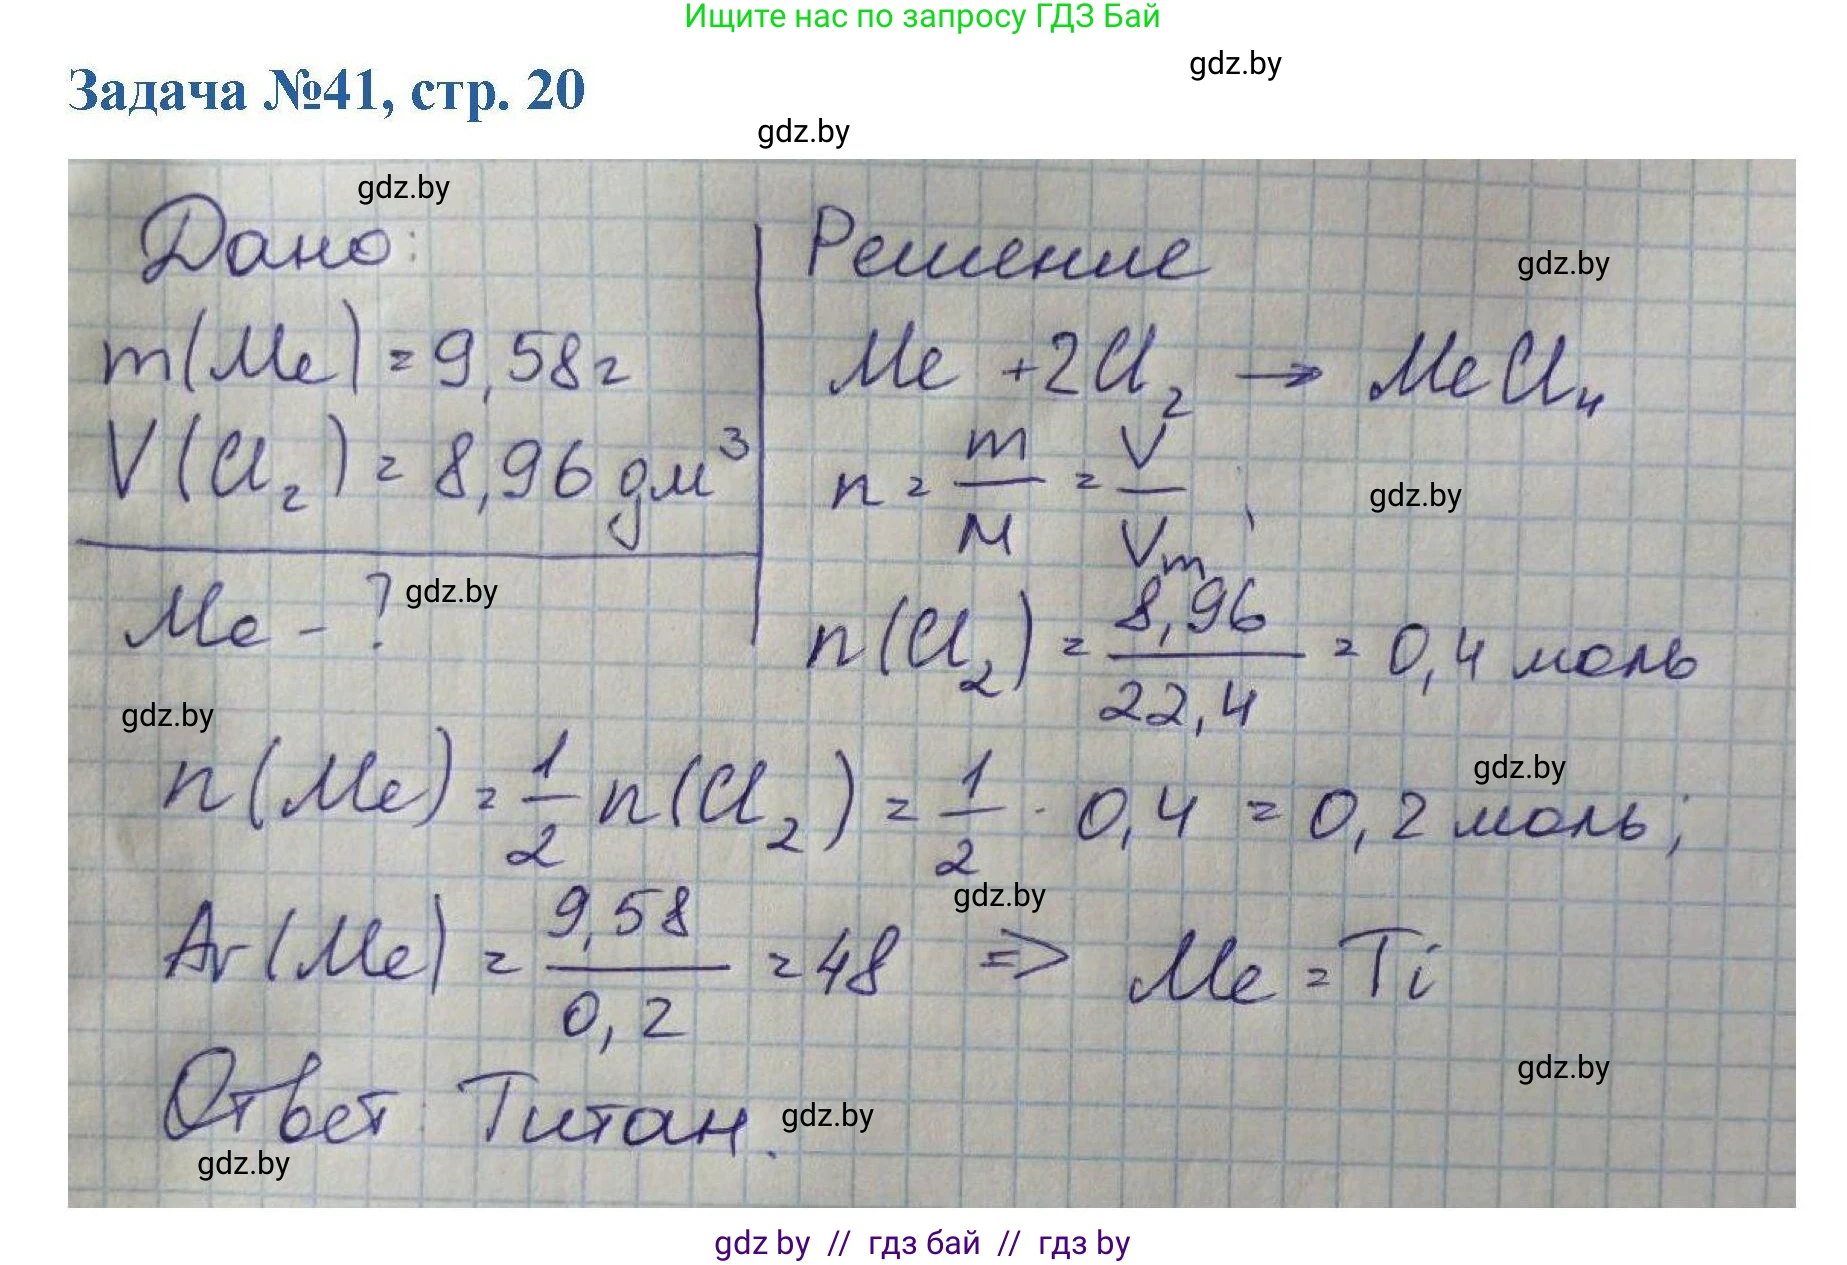 Ищите нас по запросу ГДЗ Бай
gdz.by
Задача №41, стр. 20
gdz.by
gdz.by
Дано:
m(Me) = 9,58г
V(Cl₂) = 8,96 дм³
Me - ?
gdz.by
Решение
gdz.by
Me + 2Cl₂ → MeCl₄
n = m/M = V/Vm;
gdz.by
n(Cl₂) = 8,96/22,4 = 0,4 моль
gdz.by
gdz.by
n(Me) = 1/2 n(Cl₂) = 1/2 · 0,4 = 0,2 моль;
gdz.by
Ar(Me) = 9,58/0,2 = 48 => Me = Ti
gdz.by
Ответ: Титан.
gdz.by
gdz.by
gdz by // гдз бай // гдз by